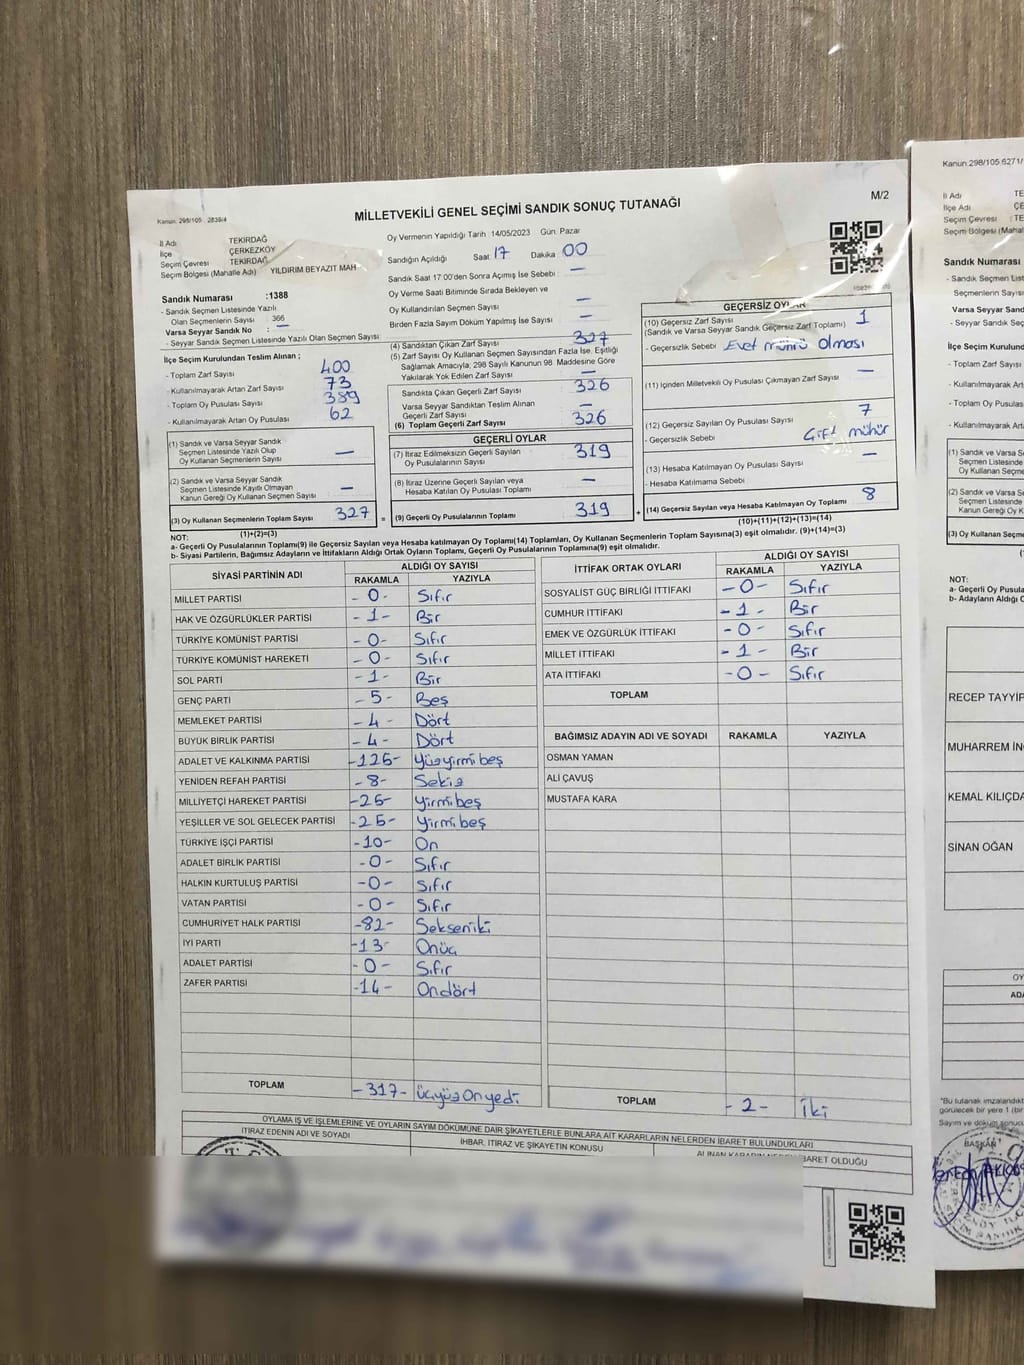 Kanun: 298/105 2839/4
MİLLETVEKİLİ GENEL SEÇİMİ SANDIK SONUÇ TUTANAĞI
M/2
İl Adı TEKİRDAĞ
İlçe ÇERKEZKÖY
Seçim Çevresi TEKİRDAĞ
Seçim Bölgesi (Mahalle Adı) YILDIRIM BEYAZIT MAH
Sandık Numarası :1388
- Sandık Seçmen Listesinde Yazılı
Olan Seçmenlerin Sayısı 366
Varsa Seyyar Sandık No : —
- Seyyar Sandık Seçmen Listesinde Yazılı Olan Seçmen Sayısı
İlçe Seçim Kurulundan Teslim Alınan ;
- Toplam Zarf Sayısı 400
- Kullanılmayarak Artan Zarf Sayısı 73
- Toplam Oy Pusulası Sayısı 389
- Kullanılmayarak Artan Oy Pusulası 62
(1) Sandık ve Varsa Seyyar Sandık
Seçmen Listesinde Yazılı Olup
Oy Kullanan Seçmenlerin Sayısı —
(2) Sandık ve Varsa Seyyar Sandık
Seçmen Listesinde Kayıtlı Olmayan
Kanun Gereği Oy Kullanan Seçmen Sayısı —
(3) Oy Kullanan Seçmenlerin Toplam Sayısı 327 =
(1)+(2)=(3)
Oy Vermenin Yapıldığı Tarih : 14/05/2023 Gün: Pazar
Sandığın Açıldığı Saat 17 Dakika 00
Sandık Saat 17:00'den Sonra Açılmış İse Sebebi : —
Oy Verme Saati Bitiminde Sırada Bekleyen ve
Oy Kullandırılan Seçmen Sayısı —
Birden Fazla Sayım Döküm Yapılmış İse Sayısı —
(4) Sandıktan Çıkan Zarf Sayısı 327
(5) Zarf Sayısı Oy Kullanan Seçmen Sayısından Fazla İse, Eşitliği
Sağlamak Amacıyla; 298 Sayılı Kanunun 98. Maddesine Göre
Yakılarak Yok Edilen Zarf Sayısı —
Sandıkta Çıkan Geçerli Zarf Sayısı 326
Varsa Seyyar Sandıktan Teslim Alınan
Geçerli Zarf Sayısı —
(6) Toplam Geçerli Zarf Sayısı 326
GEÇERLİ OYLAR
(7) İtiraz Edilmeksizin Geçerli Sayılan
Oy Pusulalarının Sayısı 319
(8) İtiraz Üzerine Geçerli Sayılan veya
Hesaba Katılan Oy Pusulası Toplamı —
(9) Geçerli Oy Pusulalarının Toplamı 319 +
GEÇERSİZ OYLAR
(10) Geçersiz Zarf Sayısı 1
(Sandık ve Varsa Seyyar Sandık Geçersiz Zarf Toplamı)
- Geçersizlik Sebebi Evet mührü olması
(11) İçinden Milletvekili Oy Pusulası Çıkmayan Zarf Sayısı —
(12) Geçersiz Sayılan Oy Pusulası Sayısı 7
- Geçersizlik Sebebi Çift mühür
(13) Hesaba Katılmayan Oy Pusulası Sayısı —
- Hesaba Katılmama Sebebi
(14) Geçersiz Sayılan veya Hesaba Katılmayan Oy Toplamı 8
(10)+(11)+(12)+(13)=(14)
NOT:
a- Geçerli Oy Pusulalarının Toplamı(9) ile Geçersiz Sayılan veya Hesaba katılmayan Oy Toplamı(14) Toplamları, Oy Kullanan Seçmenlerin Toplam Sayısına(3) eşit olmalıdır. (9)+(14)=(3)
b- Siyasi Partilerin, Bağımsız Adayların ve İttifakların Aldığı Ortak Oyların Toplamı, Geçerli Oy Pusulalarının Toplamına(9) eşit olmalıdır.
SİYASİ PARTİNİN ADI ALDIĞI OY SAYISI
RAKAMLA YAZIYLA
MİLLET PARTİSİ - 0 - Sıfır
HAK VE ÖZGÜRLÜKLER PARTİSİ - 1 - Bir
TÜRKİYE KOMÜNİST PARTİSİ - 0 - Sıfır
TÜRKİYE KOMÜNİST HAREKETİ - 0 - Sıfır
SOL PARTİ - 1 - Bir
GENÇ PARTİ - 5 - Beş
MEMLEKET PARTİSİ - 4 - Dört
BÜYÜK BİRLİK PARTİSİ - 4 - Dört
ADALET VE KALKINMA PARTİSİ -125- Yüzyirmi beş
YENİDEN REFAH PARTİSİ - 8 - Sekiz
MİLLİYETÇİ HAREKET PARTİSİ -25- Yirmibeş
YEŞİLLER VE SOL GELECEK PARTİSİ -25- Yirmibeş
TÜRKİYE İŞÇİ PARTİSİ -10- On
ADALET BİRLİK PARTİSİ - 0 - Sıfır
HALKIN KURTULUŞ PARTİSİ - 0 - Sıfır
VATAN PARTİSİ - 0 - Sıfır
CUMHURİYET HALK PARTİSİ -82- Sekseniki
İYİ PARTİ -13- Onüç
ADALET PARTİSİ - 0 - Sıfır
ZAFER PARTİSİ -14- Ondört
TOPLAM - 317 - üçyüz Onyedi
İTTİFAK ORTAK OYLARI ALDIĞI OY SAYISI
RAKAMLA YAZIYLA
SOSYALİST GÜÇ BİRLİĞİ İTTİFAKI - 0 - Sıfır
CUMHUR İTTİFAKI - 1 - Bir
EMEK VE ÖZGÜRLÜK İTTİFAKI - 0 - Sıfır
MİLLET İTTİFAKI - 1 - Bir
ATA İTTİFAKI - 0 - Sıfır
TOPLAM
BAĞIMSIZ ADAYIN ADI VE SOYADI RAKAMLA YAZIYLA
OSMAN YAMAN
ALİ ÇAVUŞ
MUSTAFA KARA
TOPLAM - 2 - İki
OYLAMA İŞ VE İŞLEMLERİNE VE OYLARIN SAYIM DÖKÜMÜNE DAİR ŞİKAYETLERLE BUNLARA AİT KARARLARIN NELERDEN İBARET BULUNDUKLARI
İTİRAZ EDENİN ADI VE SOYADI İHBAR, İTİRAZ VE ŞİKAYETİN KONUSU
Kanun: 298/105 6271/
İl Adı TE
İlçe Adı ÇE
Seçim Çevresi : TE
Seçim Bölgesi (Mahal
Sandık Numarası
- Sandık Seçmen Listesi
Seçmenlerin Sayısı
Varsa Seyyar Sandık
- Seyyar Sandık Seçm
İlçe Seçim Kurulundan
- Toplam Zarf Sayısı
- Kullanılmayarak Artan
- Toplam Oy Pusulası
- Kullanılmayarak Artan
(1) Sandık ve Varsa S
Seçmen Listesinde
Oy Kullanan Seçme
(2) Sandık ve Varsa S
Seçmen Listesinde
Kanun Gereği Oy K
(3) Oy Kullanan Seçme
NOT:
a- Geçerli Oy Pusula
b- Adayların Aldığı O
RECEP TAYYİP
MUHARREM İN
KEMAL KILIÇDA
SİNAN OĞAN
OY
ADA
"Bu tutanak imzalandıkt
görülecek bir yere 1 (bir
Sayım ve döküm sonuc
BAŞKAN